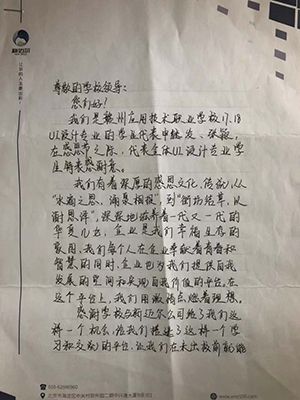 尊敬的学校领导：
您们好！
我们是赣州应用技术职业学校17.18
UI设计专业的学生代表申继发、张颖，
在感恩节之际，代表全体UI设计专业学
生销表感谢意。
我们有着深厚的感恩文化传统，从
“滴水之恩，涌泉相报”到“衔环结草，以
谢恩泽”，深深地滋养着一代又一代的
华夏儿女，企业是我们幸福生存的
家园，我们每个人在企业奉献着青春和
智慧的同时，企业也为我们提供自我
发展的空间和实现自我价值的平台，在
这个平台上，我们用激情点燃着理想。
感谢学校与新迈尔公司给了我们这
样一个机会，给我们搭建了这样一个学
习和交流的平台，让我们在未出校前就能
010-62968960